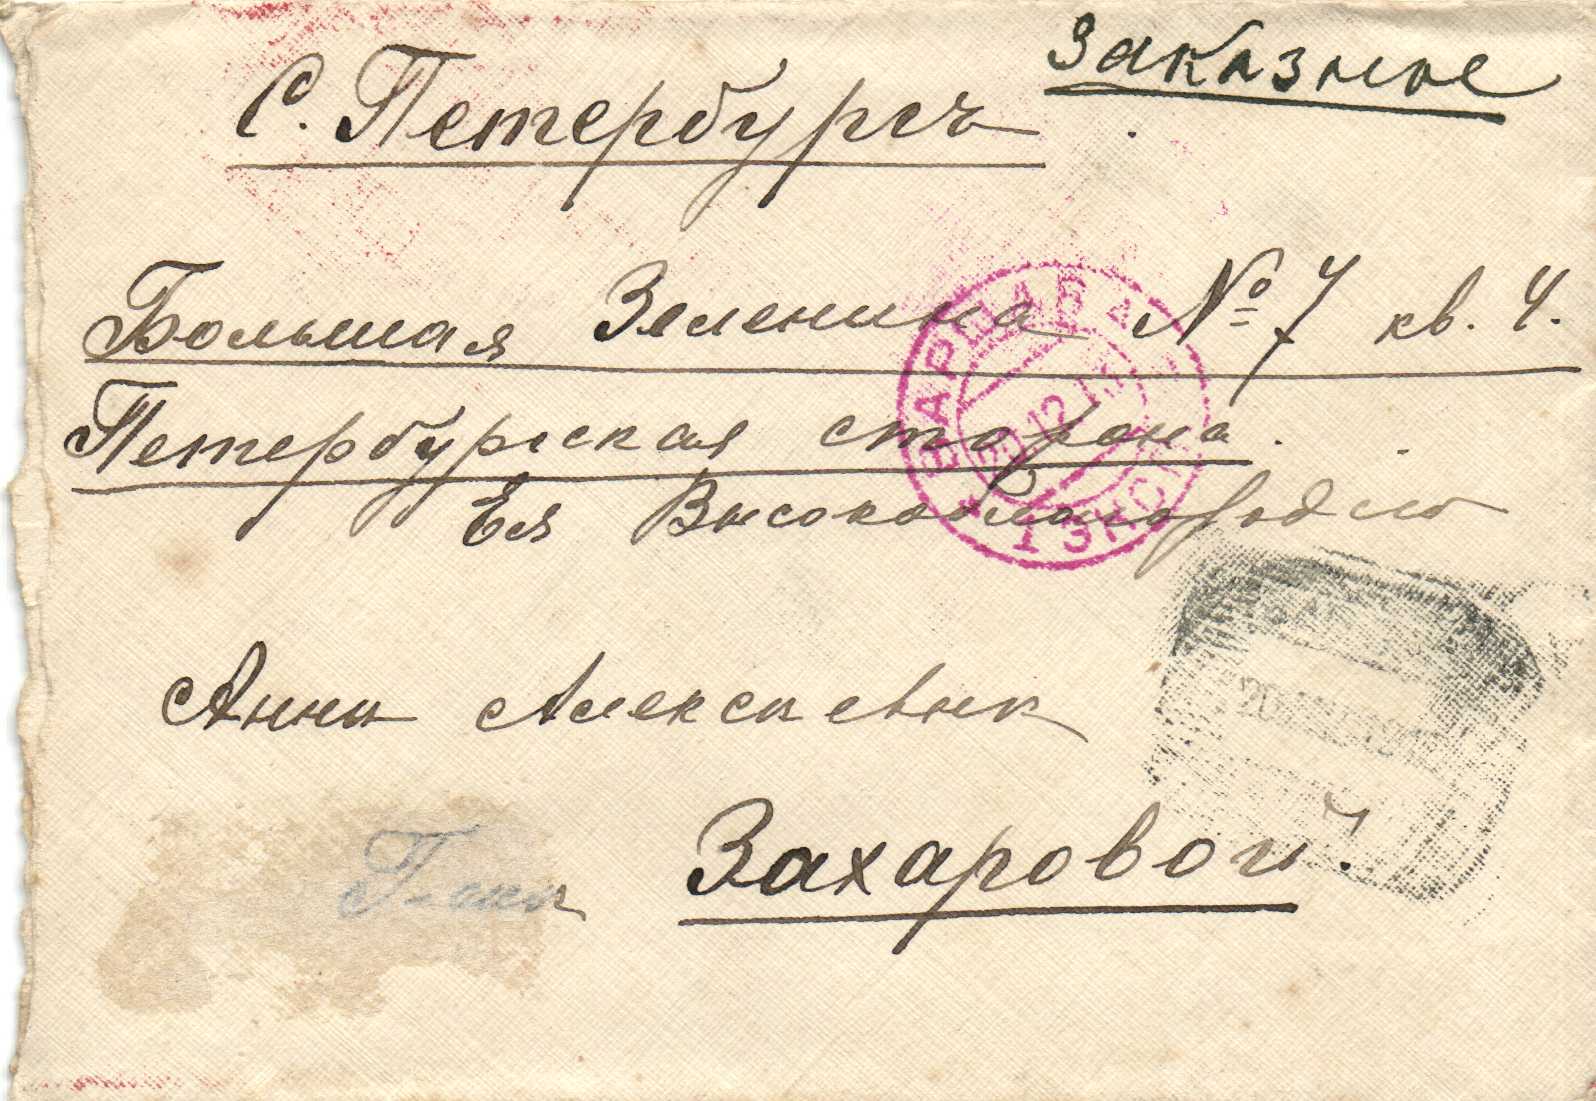 Заказное
С. Петербургъ
Большая Зеленина № 7 кв. 4.
Петербургская сторона.
Ея Высокоблагородію
Анны Алексѣевнѣ
Г-жѣ Захаровой.
ВАРШАВА
20.12.13
1 ЭКСП